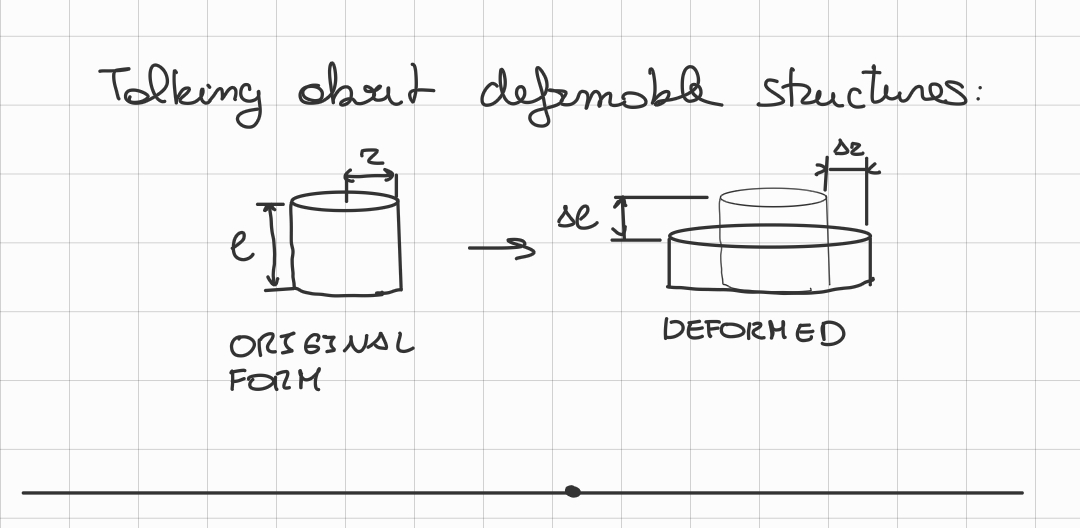 Talking about deformable structures:
r
Δr
l
Δl
ORIGINAL
FORM
DEFORMED